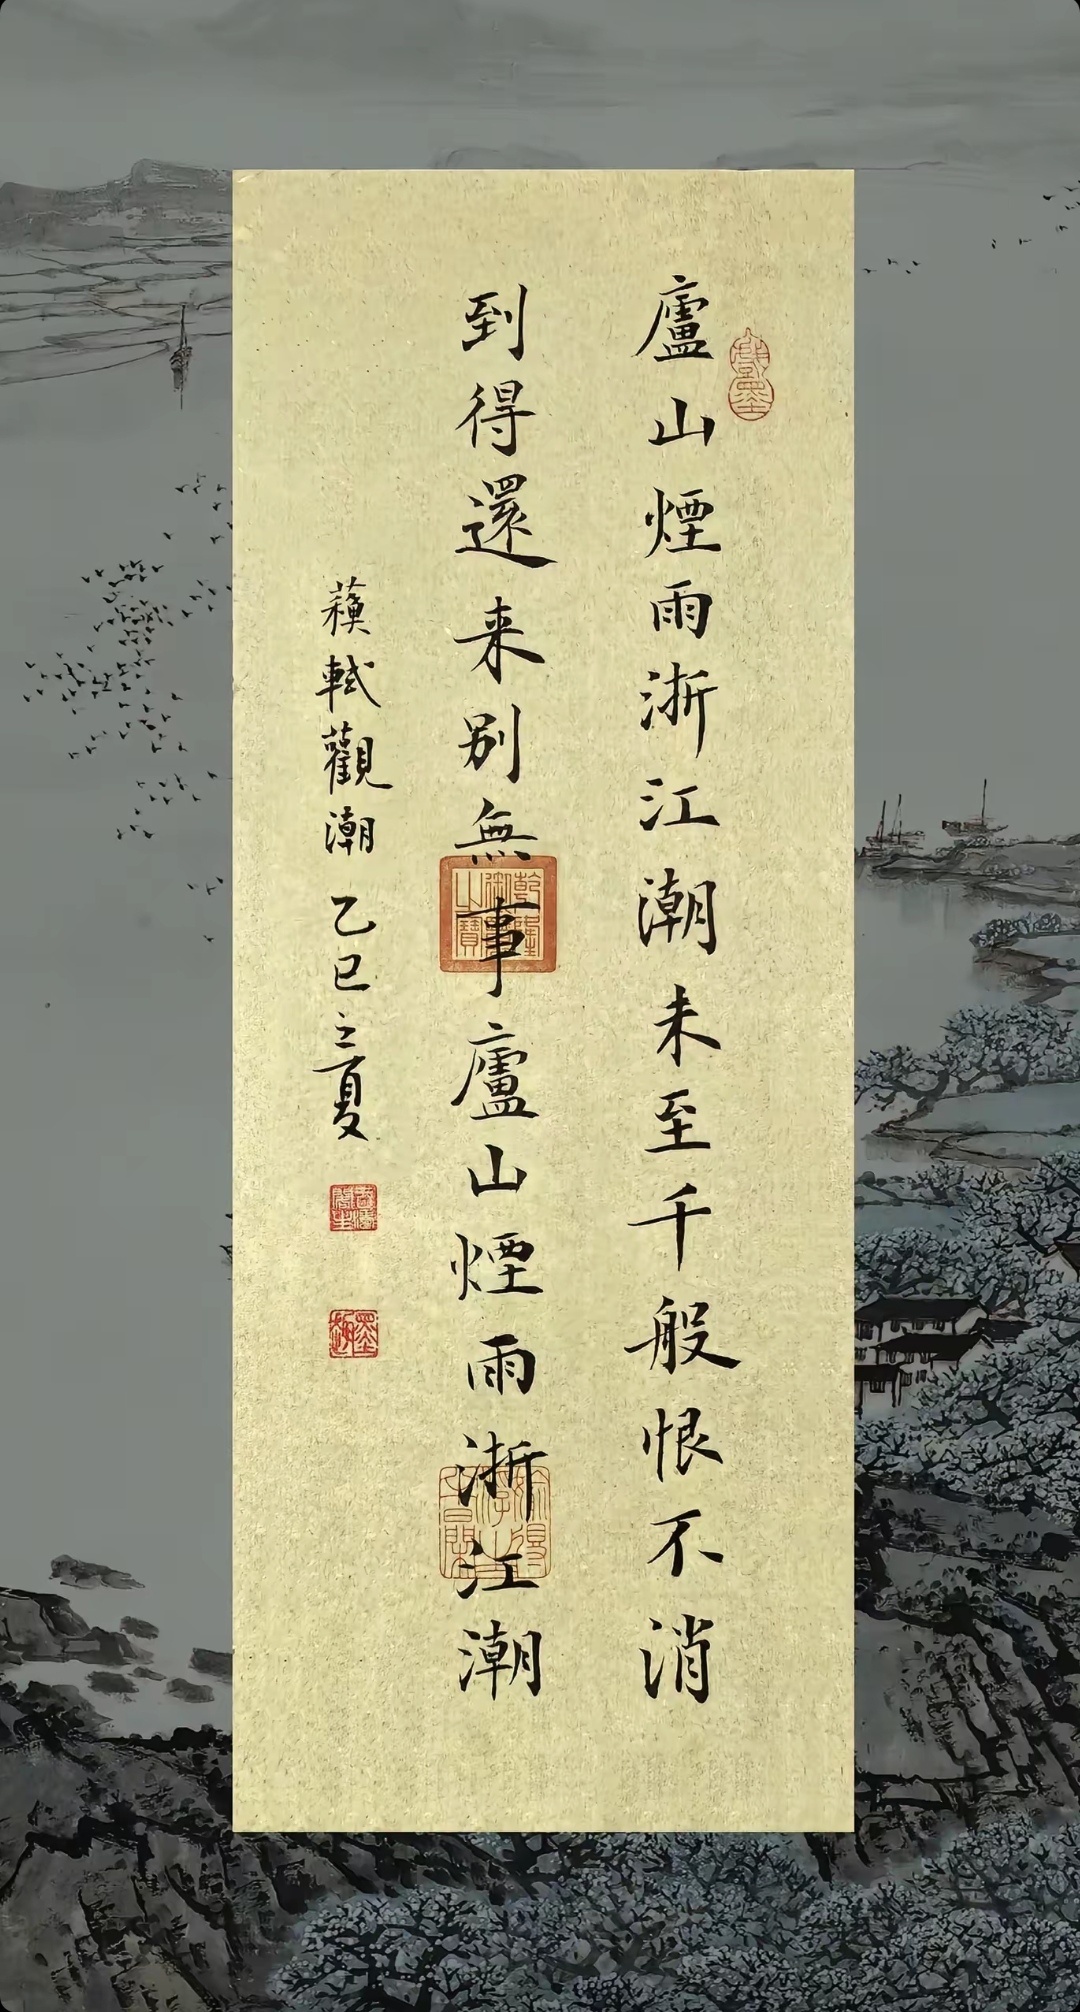 廬山煙雨浙江潮未至千般恨不消
到得還来别無事廬山煙雨浙江潮
蘓軾觀潮乙巳之夏